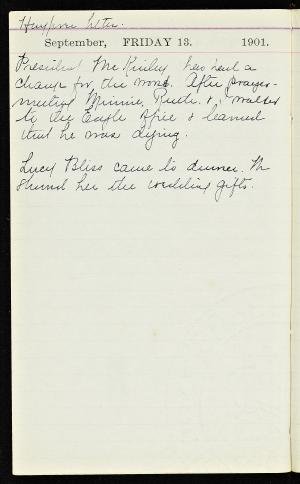 letter.
September, FRIDAY 13. 1901.
President McKinley has had a
change for the worst. After prayer-
meeting Minnie, Ruth & I walked
to the Eagle Office & learned
that he was dying.
Lucy Bliss came to dinner. We
showed her the wedding gifts.